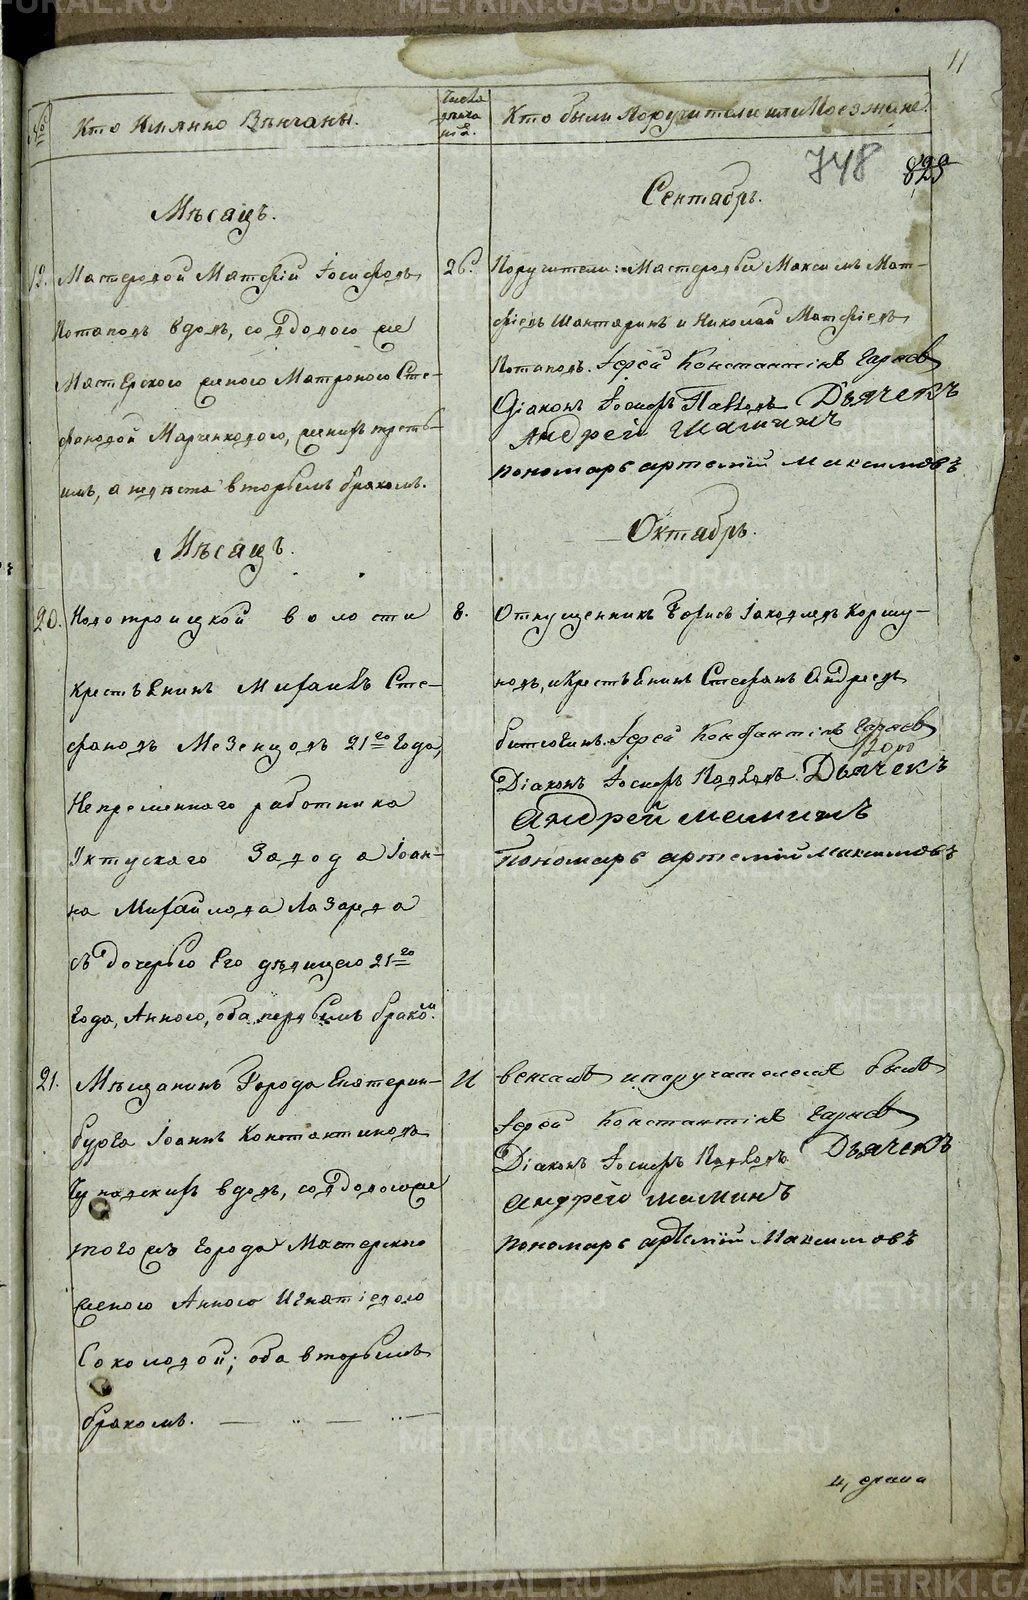 11
№
Кто Имянно Вѣнчаны.
Число
Кто были Поручители или Поезжане.
748 829
Мѣсяцъ.
Сентябрь.
19. Мастеровой Матфій Іосифовъ
Потаповъ вдовъ, со вдовою же
Мастерскою женою Матроною Сте-
фановой Марченковою, женихъ треть-
имъ, а невѣста вторымъ бракомъ.
26. Поручители: Мастеровые Максимъ Мат-
фіевъ Шантаринъ и Николай Матфіевъ
Потаповъ. Іерей Константінъ
Діаконъ Іосифъ Павловъ Дьячекъ
Андрей
пономарь артемій максимовъ
Мѣсяцъ.
Октябрь.
20. Новотроицкой волости
крестьянинъ Михаилъ Сте-
фановъ Мезенцовъ 21го года,
Непременнаго работника
Уктускаго Завода Іоан-
на Михайлова Лазарева
съ дочерью Его дѣвицею 21го
года, Анною, оба первымъ бракомъ.
8. Отпущенникъ Борисъ Іаковлевъ Коршу-
новъ, и Крестьянинъ Стефанъ Андреевъ
Іерей Константінъ
Діаконъ Іосифъ Павловъ Дьячекъ
Андрей маминъ
Пономарь артемій максимовъ
21. Мѣщанинъ Города Екатерин-
бурга Іоаннъ Константиновъ
вдовъ, со вдовою же
того жъ города Мастерскою
женою Анною Игнатіевою
Соколовой; оба вторымъ
бракомъ.
11 венчалъ и поручителемъ былъ
Іерей Константінъ
Діаконъ Іосифъ Павловъ Дьячекъ
андрей маминъ
пономарь артемій Максимовъ